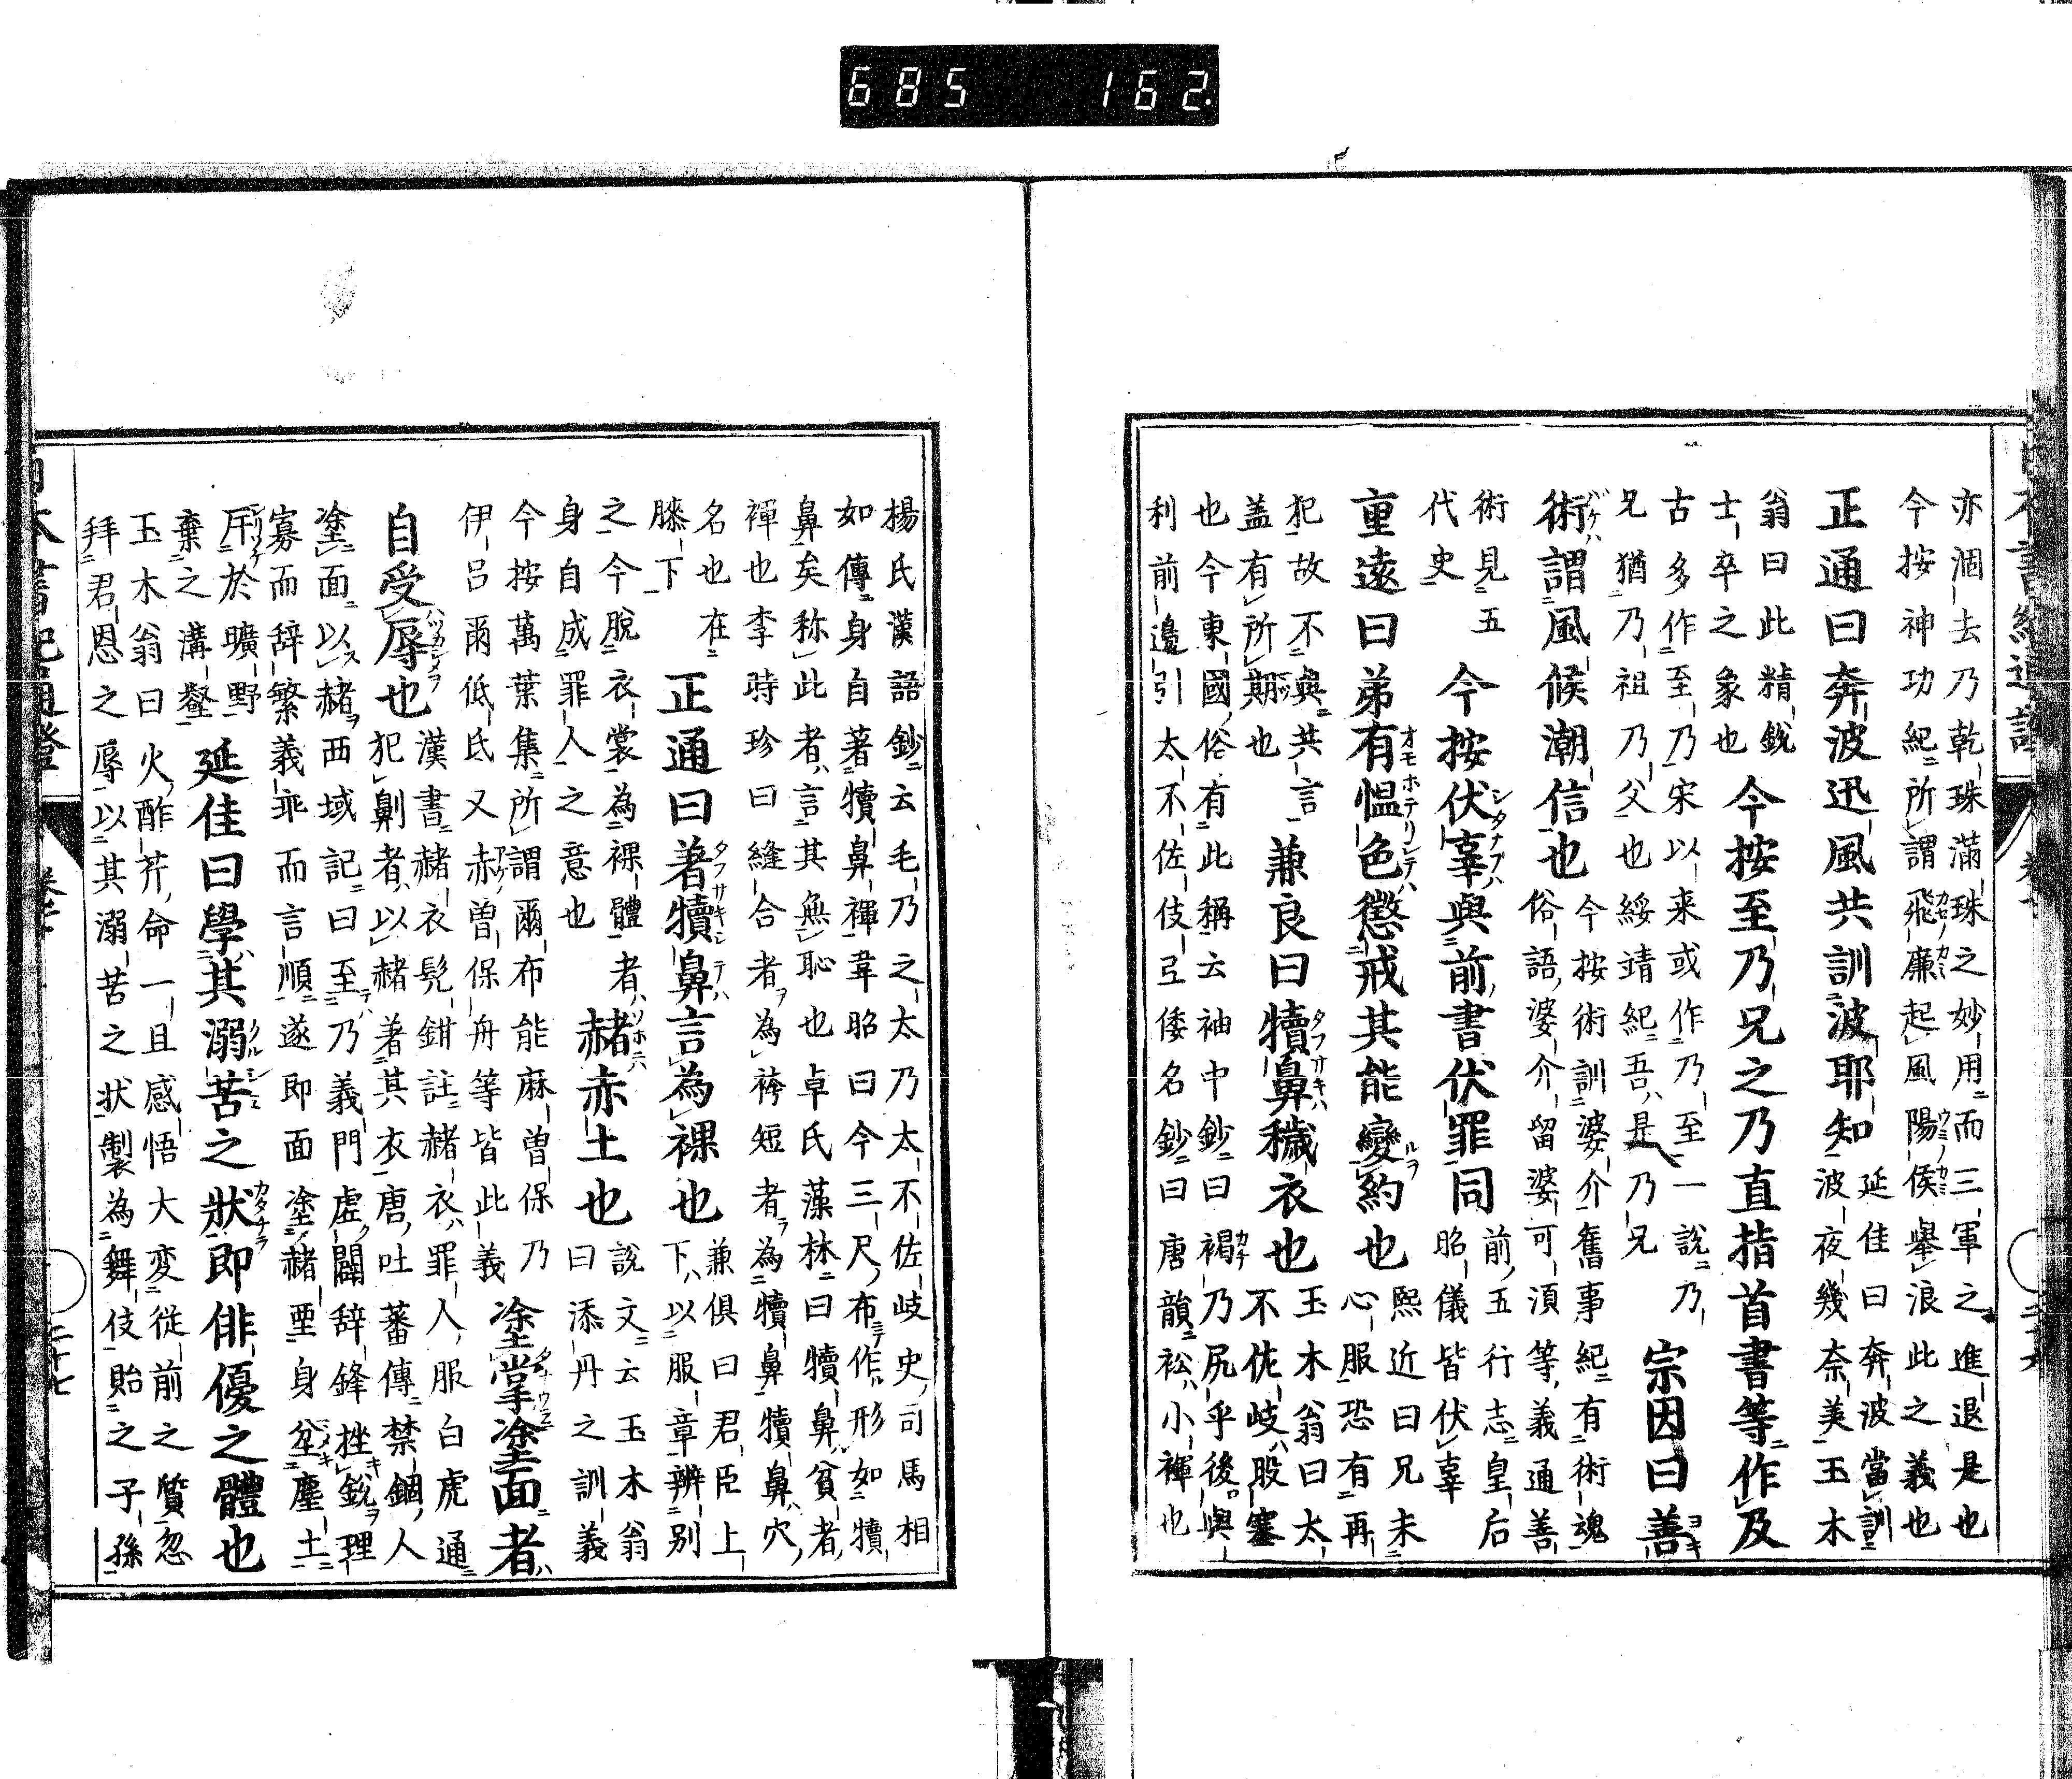 685 162
亦涸去乃乾珠滿珠之妙用而三軍之進退是也
今按神功紀所謂飛廉起風陽侯舉浪此之義也
正通曰奔波迅風共訓波耶知
延佳曰奔波當訓
波夜幾奈美玉木
翁曰此精鋭
士卒之象也
今按至乃兄之乃直指首書等作及
古多作至乃宋以来或作乃至一說乃
兄猶乃祖乃父也綏靖紀吾是乃兄
宗因曰善
術謂風候潮信也
今按術訓婆介舊事紀有術魂
俗語婆介留婆可須等義通善
術見五
代史
今按伏辜與前書伏罪同
前五行志皇后
昭儀皆伏辜
重遠曰弟有慍色懲戒其能變約也
熙近曰兄未
心服恐有再
犯故不與共言
蓋有所期也
兼良曰犢鼻穢衣也
玉木翁曰太
不佐岐股塞
也今東國俗有此稱云袖中鈔曰褐乃尻乎後與
利前邊引太不佐伎弖倭名鈔曰唐韻衳小褌也
楊氏漢語鈔云毛乃之太乃太不佐岐史司馬相
如傳身自著犢鼻褌韋昭曰今三尺布作形如犢
鼻矣称此者言其無恥也卓氏藻林曰犢鼻貧者
褌也李時珍曰縫合者為袴短者為犢鼻犢鼻穴
名也在
膝下
正通曰著犢鼻言為裸也
兼俱曰君臣上
下以服章辨別
之今脫衣裳為裸體者
身自成罪人之意也
赭赤土也
說文云玉木翁
曰添丹之訓義
今按萬葉集所謂爾布能麻曾保乃
伊呂爾低氐又赤曾保舟等皆此義
塗掌塗面者
自受辱也
漢書赭衣髡鉗註赭衣罪人服白虎通
犯劓者以赭著其衣唐吐蕃傳禁錮人
塗面以赭西域記曰至乃義門虛闢辞鋒挫鋭理
寡而辞繁義乖而言順遂即面塗赭堊身坌塵土
斥於曠野
棄之溝壑
延佳曰學其溺苦之狀即俳優之體也
玉木翁曰火酢芹命一且感悟大変従前之質忽
拜君恩之辱以其溺苦之状製為舞伎貽之子孫